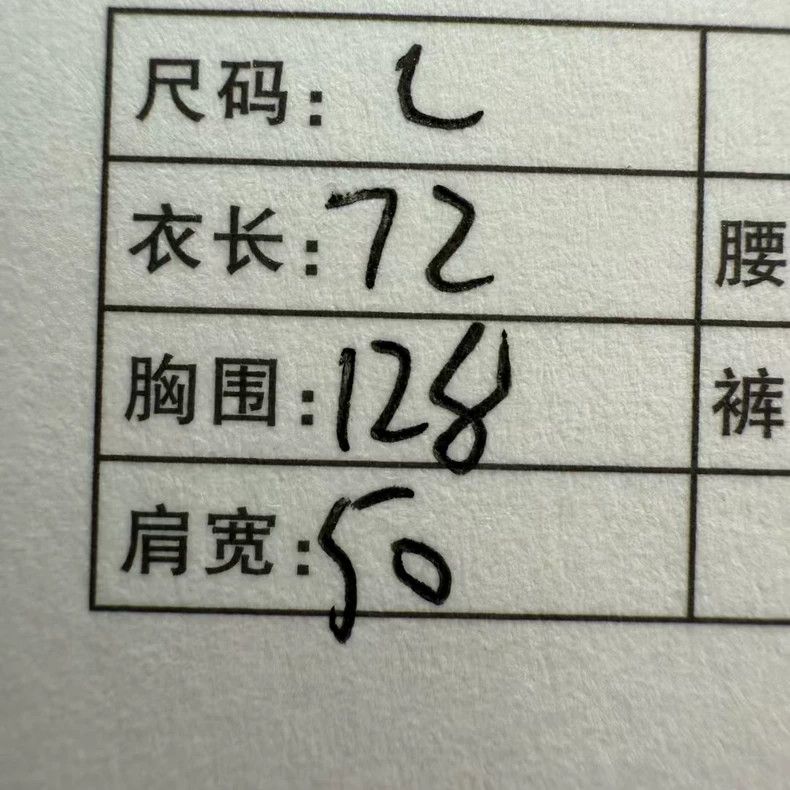 尺码: L
衣长: 72 腰
胸围: 128 裤
肩宽: 50